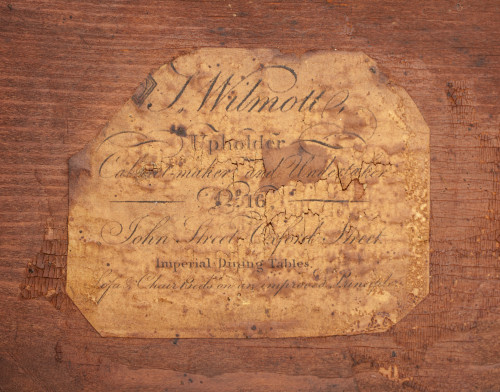 J. Wilmott,
Upholder
Cabinet-maker and Undertaker
No. 16
John Street Oxford Street
Imperial Dining Tables
Sofa & Chair Beds on an improved Principle